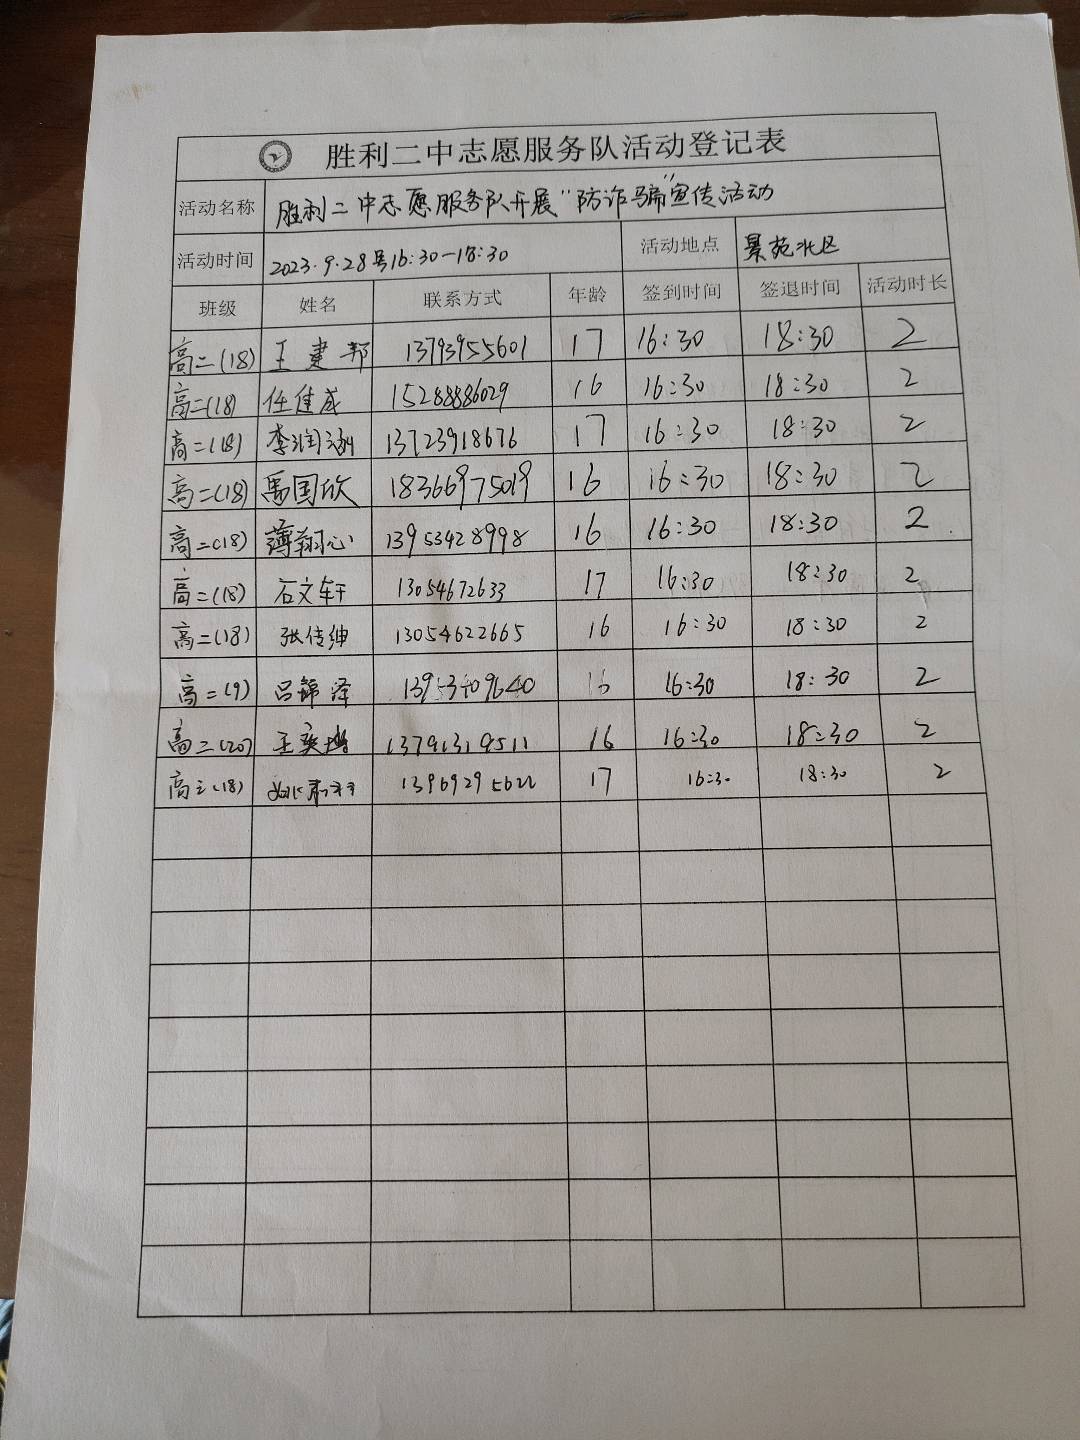 胜利二中志愿服务队活动登记表
活动名称 胜利二中志愿服务队开展“防诈骗”宣传活动
活动时间 2023.9.28号16:30—18:30 活动地点 景苑北区
班级 姓名 联系方式 年龄 签到时间 签退时间 活动时长
高二(18) 王建邦 13793955601 17 16:30 18:30 2
高二(18) 任佳威 15288886029 16 16:30 18:30 2
高二(18) 李润涵 13723918676 17 16:30 18:30 2
高二(18) 禹国欣 18366975019 16 16:30 18:30 2
高二(18) 薄翔心 13953428998 16 16:30 18:30 2
高二(18) 石文轩 13054672633 17 16:30 18:30 2
高二(18) 张传绅 13054622665 16 16:30 18:30 2
高二(9) 吕锦泽 13953409640 16 16:30 18:30 2
高二(20) 王奕 13791319511 16 16:30 18:30 2
高二(18) 13969295622 17 16:30 18:30 2